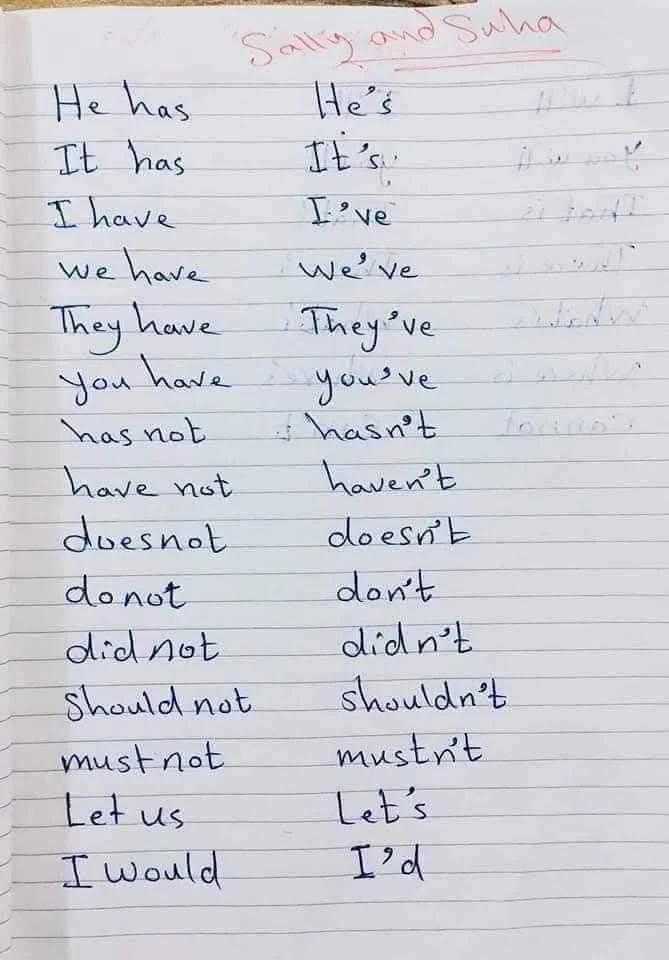 Sally and Suha
He has He's
It has It's
I have I've
we have we've
They have They've
you have you've
has not hasn't
have not haven't
does not doesn't
do not don't
did not didn't
should not shouldn't
must not mustn't
Let us Let's
I would I'd